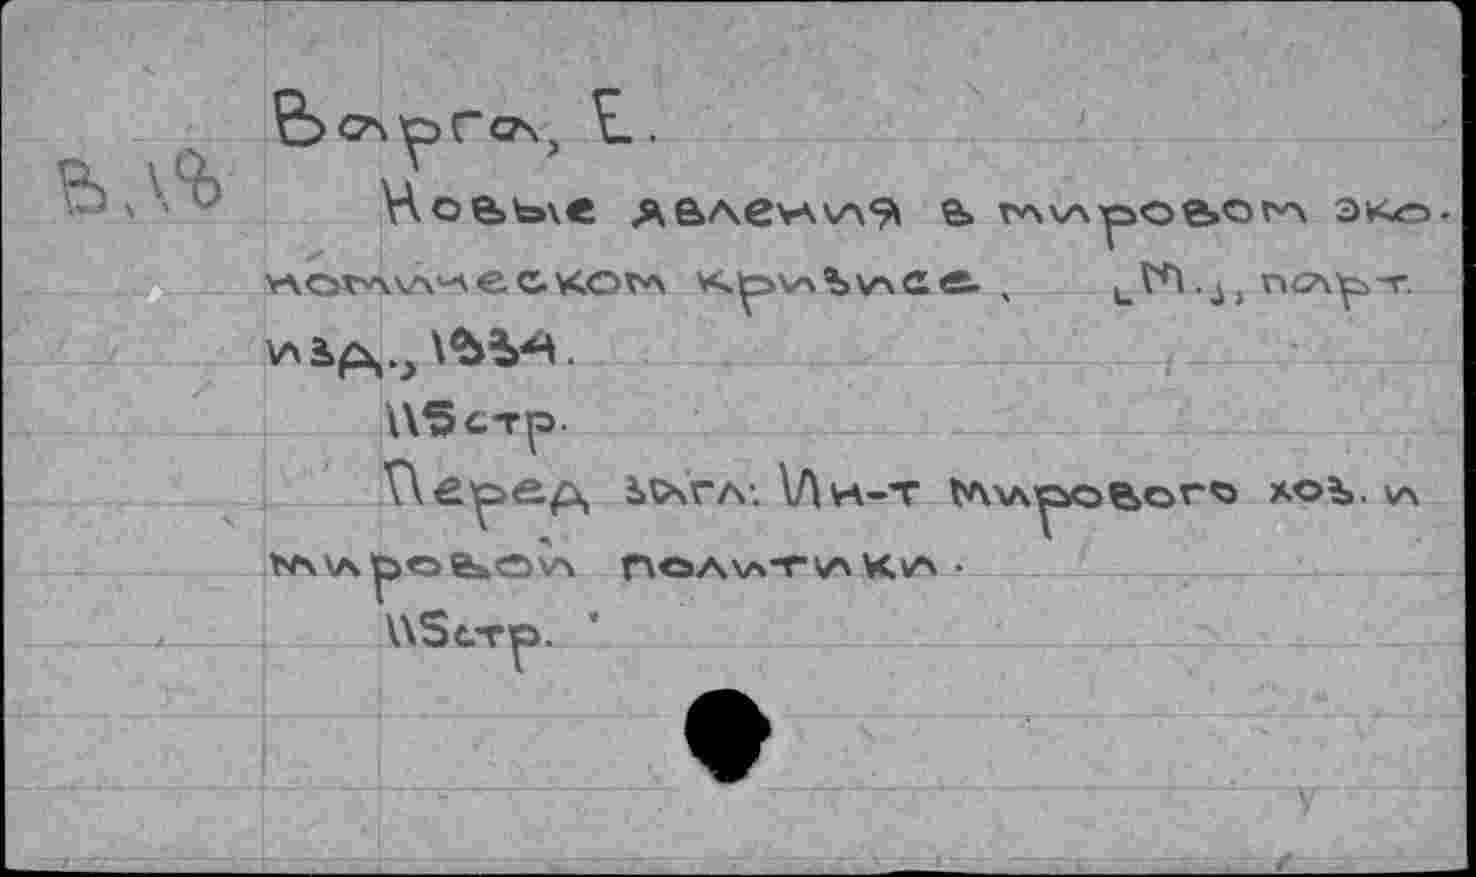 Варга, Е.
В.18
Новые явления в мировом эко-
номическом кризисе. [М.], парт.
изд., 1934.
115 стр.
Перед загл: Ин-т мирового хоз. и
мировой политики.
115 стр.